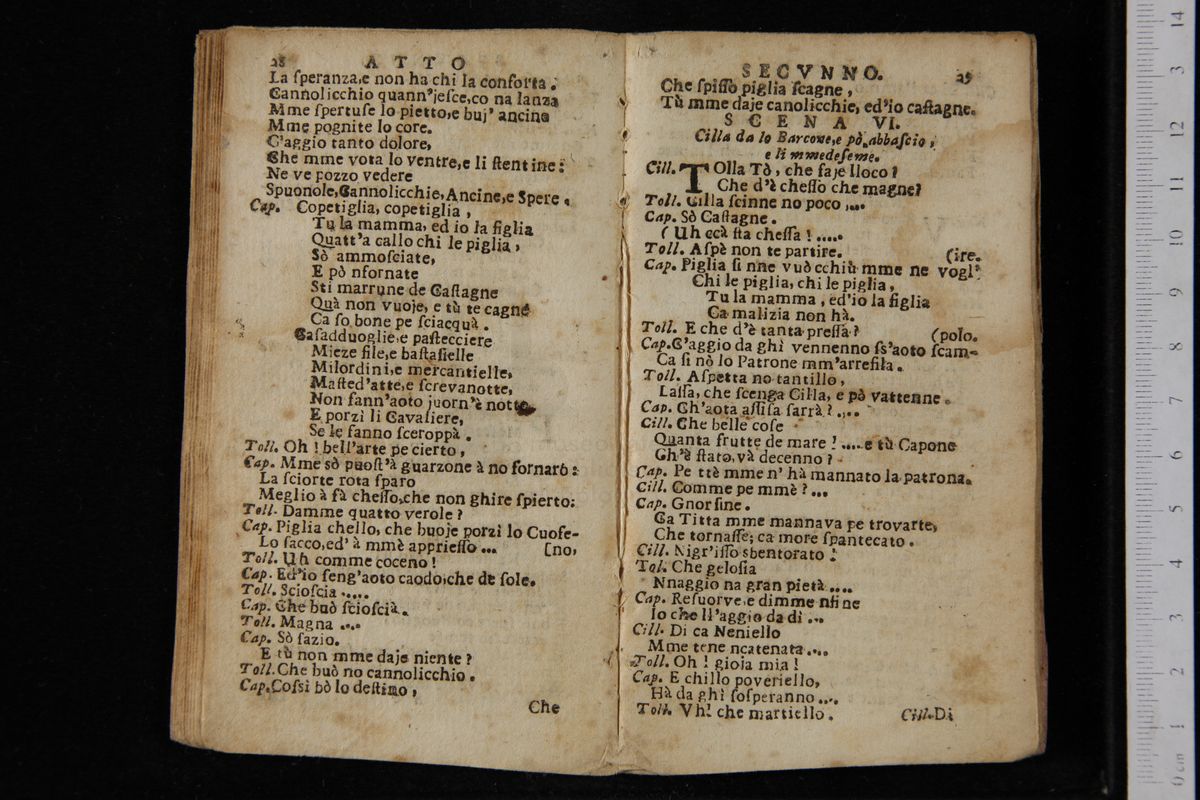 28 ATTO
La ſperanza,e non ha chi la conforta.
Cannolicchio quann'jeſce,co na lanza
Mme ſpertuſe lo pietto,e buj' ancina
Mme pognite lo core.
C'aggio tanto dolore,
Che mme vota lo ventre,e li ſtentine:
Ne ve pozzo vedere
Spuonole,Cannolicchie,Ancine,e Spere.
Cap. Copetiglia, copetiglia,
Tu la mamma, ed io la figlia
Quatt'a callo chi le piglia,
Sò ammoſciate,
E pò nfornate
Sti marrune de Caſtagne
Quà non vuoje, e tù te cagne
Ca ſo bone pe ſciacquà.
Caſadduoglie,e paſtecciere
Mieze file,e baſtaſielle
Milordini,e mercantielle,
Maſted'atte,e ſcrevanotte,
Non fann'aoto juorn'è notte
E porzì li Cavaliere,
Se le fanno ſceroppà.
Toll. Oh! bell'arte pe cierto,
Cap. Mme sò puoſt'à guarzone à no fornaro:
La ſciorte rota ſparo
Meglio à fà cheſſo,che non ghire ſpierto:
Toll. Damme quatto verole?
Cap. Piglia chello, che buoje porzì lo Cuofe-
Lo ſacco,ed' à mmè apprieſſo... [no,
Toll. Uh comme coceno!
Cap. Ed'io ſeng'aoto caodo,che de ſole.
Toll. Scioſcia.....
Cap. Che buò ſcioſcià.
Toll. Magna....
Cap. Sò ſazio.
E tù non mme daje niente?
Toll. Che buò no cannolicchio.
Cap. Coſsì bò lo deſtino,
Che
SECVNNO. 29
Che ſpiſſo piglia ſcagne,
Tù mme daje canolicchie, ed'io caſtagne.
SCENA VI.
Cilla da lo Barcone,e pò abbaſcio,
e li mmedeſeme.
Cill. TOlla Tò, che faje lloco?
Che d'è cheſſo che magne?
Toll. Cilla ſcinne no poco....
Cap. Sò Caſtagne.
(Uh ccà ſta cheſſa!.....
Toll. Aſpè non te partire. (ire.
Cap. Piglia ſi nne vuò cchiù mme ne vogl'
Chi le piglia, chi le piglia,
Tu la mamma, ed'io la figlia
Ca malizia non hà.
Toll. E che d'è tanta preſſa? (polo.
Cap. C'aggio da ghì vennenno ſs'aoto ſcam-
Ca ſi nò lo Patrone mm'arreſila.
Toll. Aſpetta no tantillo,
Laſſa, che ſcenga Cilla, e pò vattenne.
Cap. Ch'aota aſſiſa ſarrà?....
Cill. Che belle coſe
Quanta frutte de mare!....e tù Capone
Ch'è ſtato,và decenno?
Cap. Pe ttè mme n' hà mannato la patrona.
Cill. Comme pe mmè?...
Cap. Gnorſine.
Ca Titta mme mannava pe trovarte,
Che tornaſſe; ca more ſpantecato.
Cill. Nigr'iſſo sbentorato!
Tol. Che geloſia
Nnaggio na gran pietà....
Cap. Reſuorve,e dimme nfine
Io che ll'aggio da dì...
Cill. Dì ca Neniello
Mme tene ncatenata....
Toll. Oh! gioia mia!
Cap. E chillo poveriello,
Hà da ghì ſoſperanno....
Toll. Vh! che martiello.
Cill. Dì